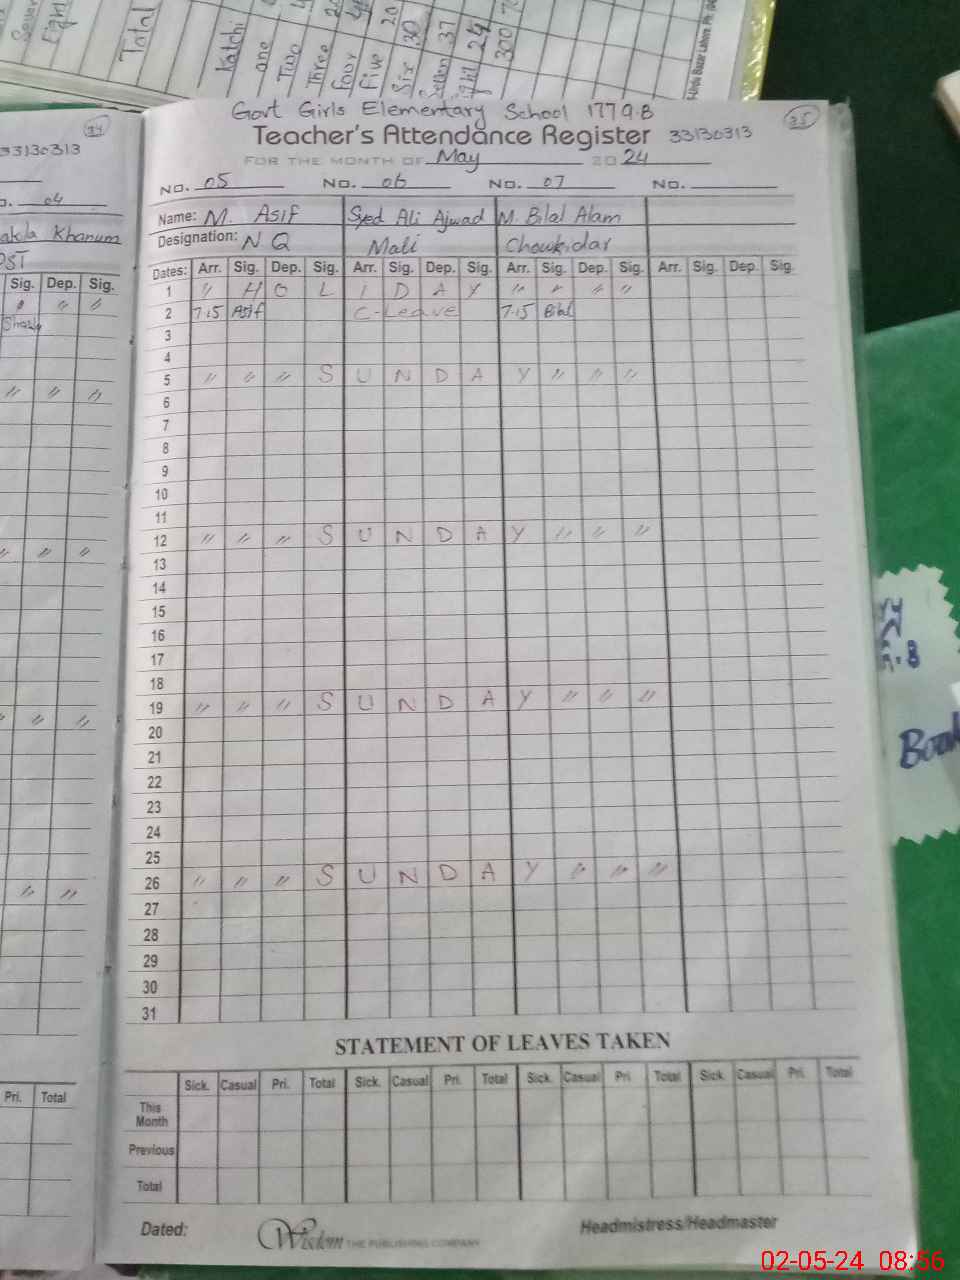 Total
Katchi
one
Two
Three
four
Five
Six 30
Seven 37
24
300
34
33130313
04
Khanum
Sig. Dep. Sig.
〃 〃
〃 〃 〃
〃 〃 〃
〃 〃 〃
〃 〃
Pri. Total
Govt Girls Elementary School 177 9.B
35
Teacher's Attendance Register 33130313
FOR THE MONTH OF May 2024
No. 05 No. 06 No. 07 No.
Name: M. Asif Syed Ali Ajwad M. Bilal Alam
Designation: N Q Mali Chowkidar
Dates: Arr. Sig. Dep. Sig. Arr. Sig. Dep. Sig. Arr. Sig. Dep. Sig. Arr. Sig. Dep. Sig.
1 〃 H O L I D A Y 〃 〃 〃 〃
2 7.15 Asif C-Leave 7.15 Bilal
3
4
5 〃 〃 〃 S U N D A Y 〃 〃 〃
6
7
8
9
10
11
12 〃 〃 〃 S U N D A Y 〃 〃 〃
13
14
15
16
17
18
19 〃 〃 〃 S U N D A Y 〃 〃 〃
20
21
22
23
24
25
26 〃 〃 〃 S U N D A Y 〃 〃 〃
27
28
29
30
31
STATEMENT OF LEAVES TAKEN
Sick. Casual Pri. Total Sick. Casual Pri. Total Sick. Casual Pri. Total Sick. Casual Pri. Total
This Month
Previous
Total
Dated: Wisdom THE PUBLISHING COMPANY Headmistress/Headmaster
02-05-24 08:56